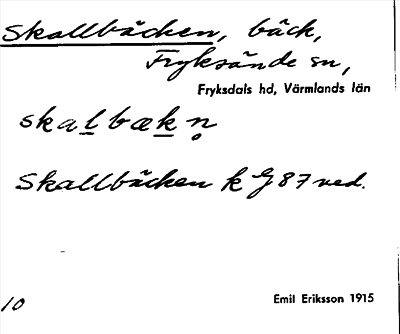 Skallbäcken, bäck,
Fryksände sn,
Fryksdals hd, Värmlands län
skal̲bæk̲n̥
Skallbäcken k G 87 ved.
10
Emil Eriksson 1915